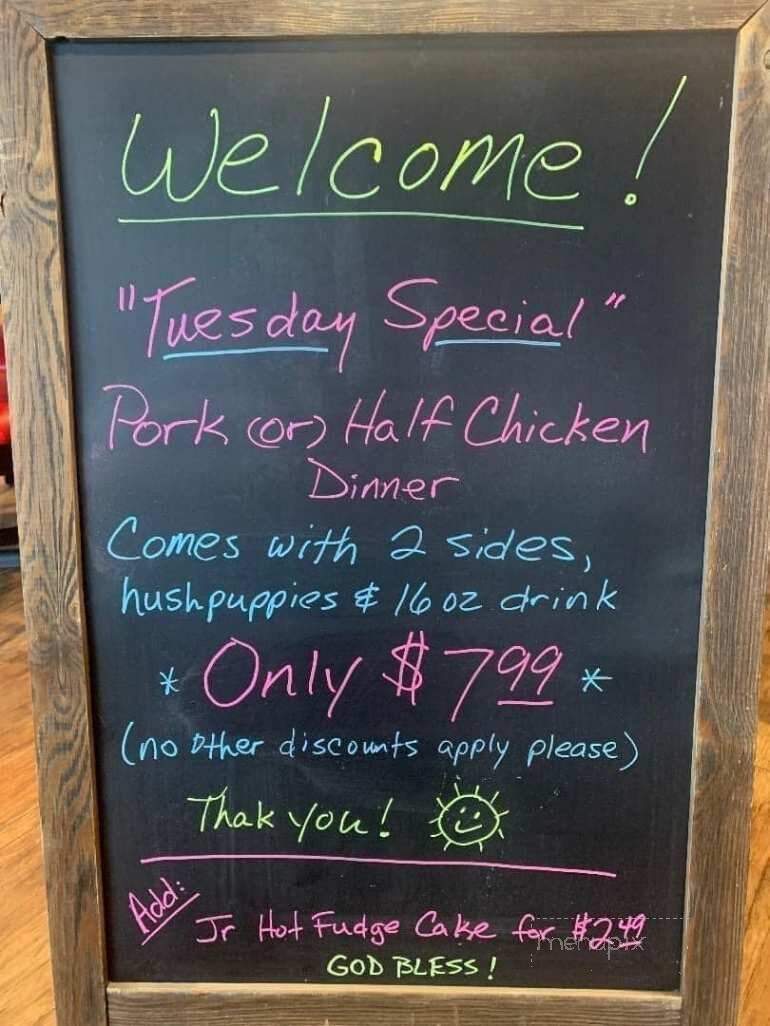 Welcome!
"Tuesday Special"
Pork (or) Half Chicken
Dinner
Comes with 2 sides,
hushpuppies & 16 oz drink
* Only $7.99 *
(no other discounts apply please)
Thak you!
Add:
Jr Hot Fudge Cake for $2.49
menupix
GOD BLESS!